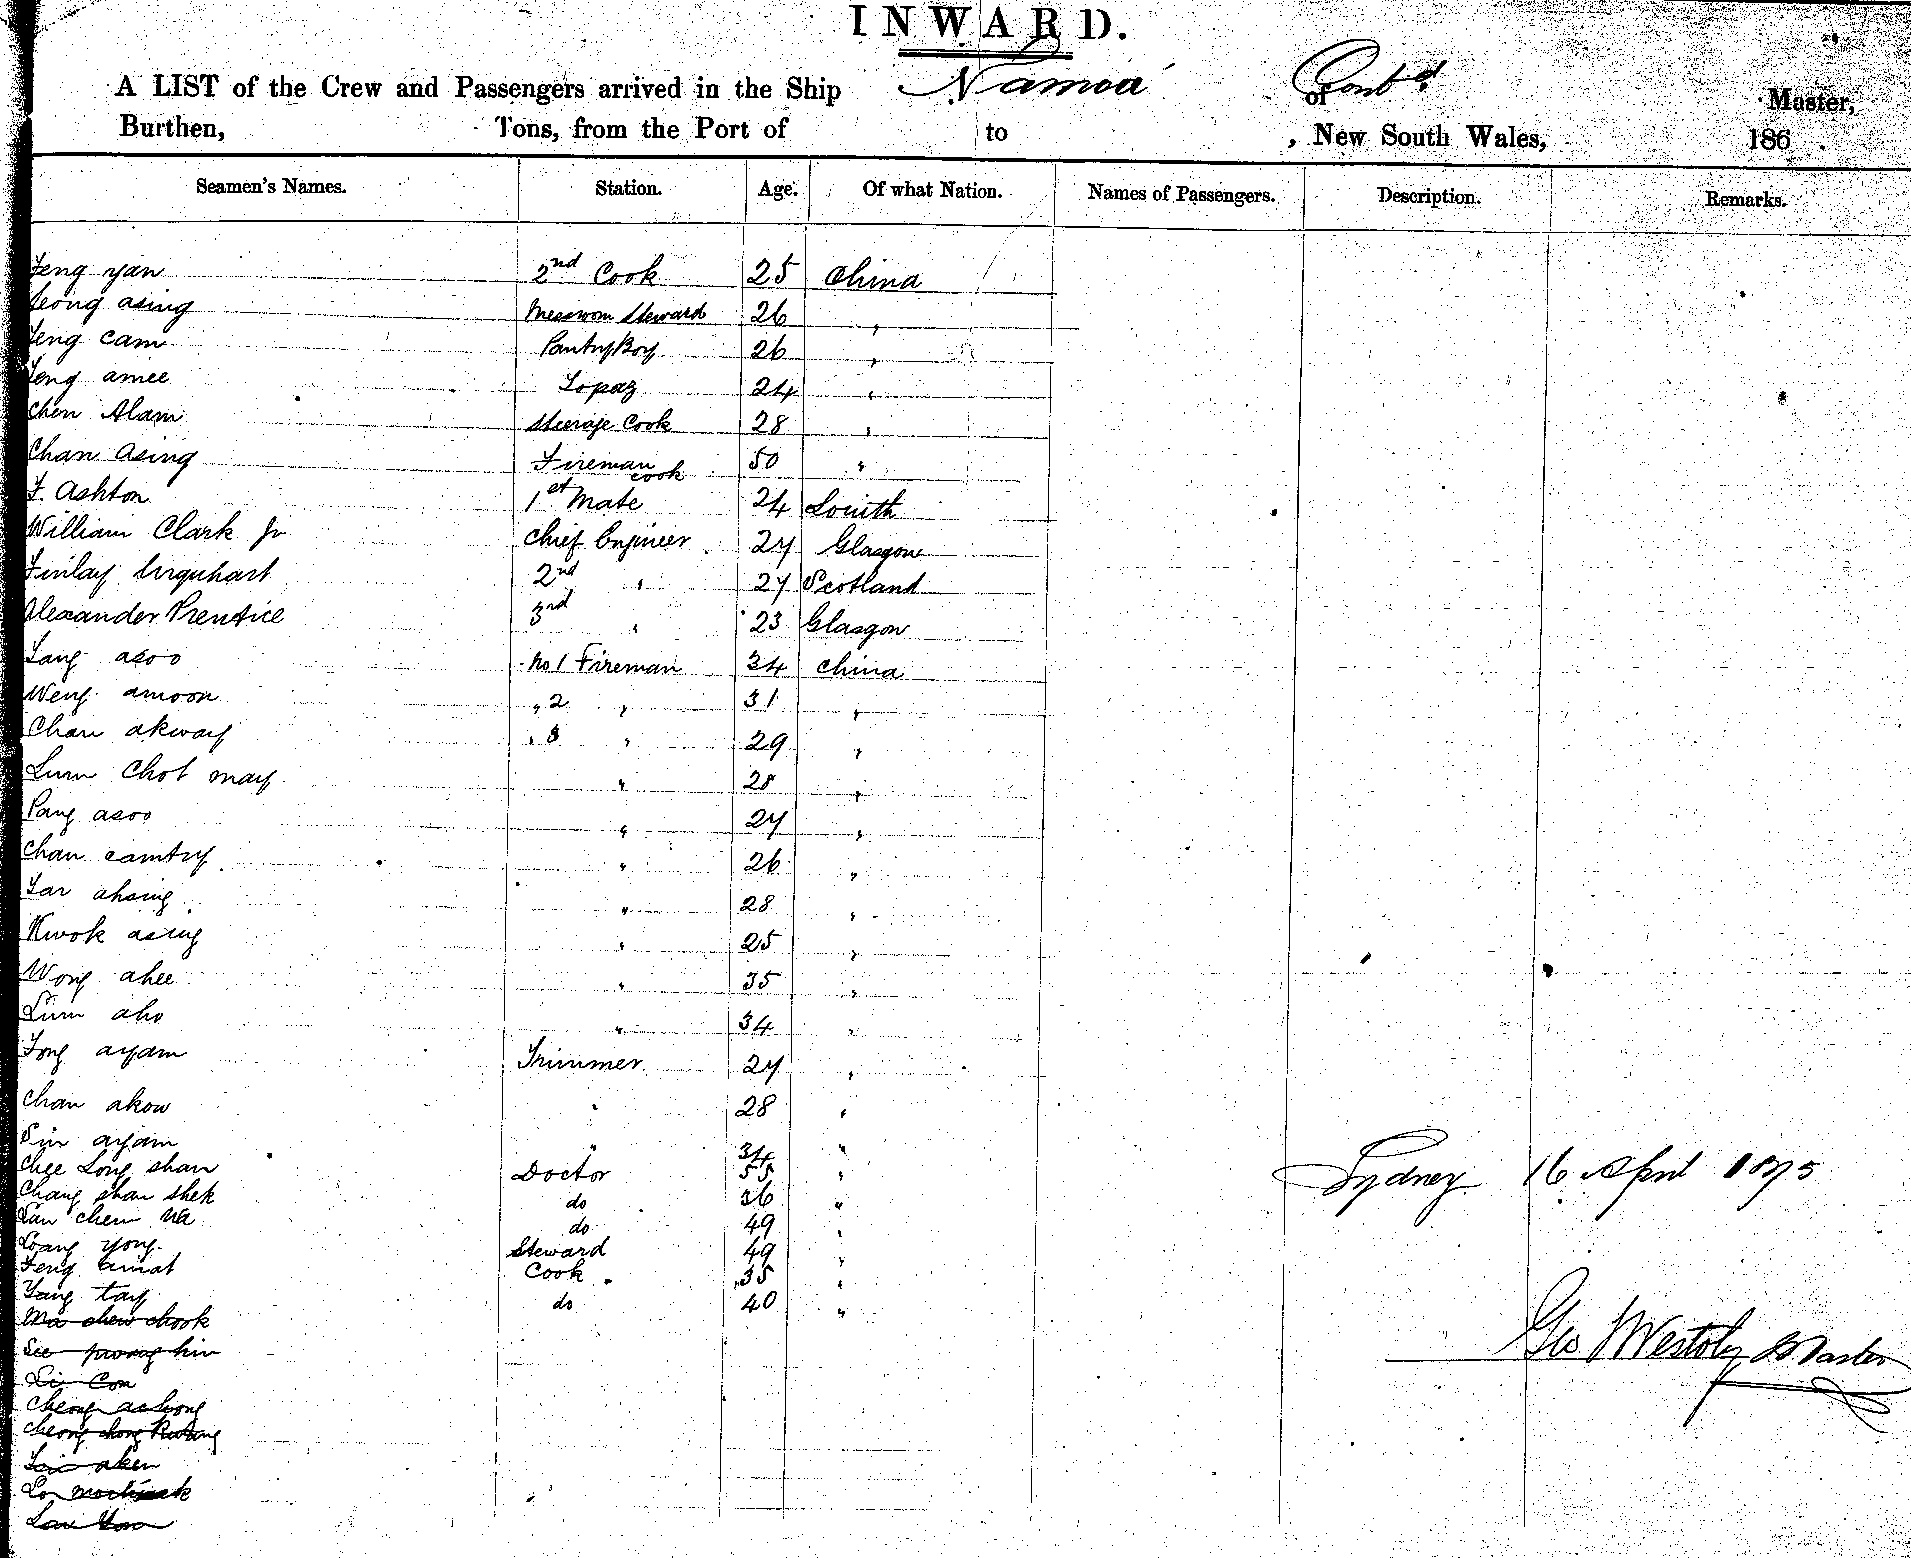 INWARD.
A LIST of the Crew and Passengers arrived in the Ship Namoa Contd of Master,
Burthen, Tons, from the Port of to , New South Wales, 186 .
Seamen's Names. Station. Age. Of what Nation. Names of Passengers. Description. Remarks.
Feng yan 2nd Cook 25 China
Leong asing Messroom Steward 26 "
Feng cam Pantry Boy 26 "
Feng amee Lopaz 24 "
Chen Alam Steerage Cook 28 "
Chan asing Fireman cook 50 "
F. Ashton 1st Mate 24 Louith
William Clark Jr Chief Engineer 27 Glasgow
Finlay Urquhart 2nd " 27 Scotland
Alexander Prentice 3rd " 23 Glasgow
Tang asoo No 1 Fireman 34 China
Weng amoon " 2 " 31 "
Chan akway " 3 " 29 "
Lum Chot may " 28 "
Pang asoo " 27 "
Chan camtry " 26 "
Tar ahsing " 28 "
Kwok asing " 25 "
Wong ahee " 35 "
Lum aho " 34 "
Tong ayam Trimmer 27 "
Chan akow " 28 "
Sin ayam " 34 "
Chee Long shan Doctor 55 "
Chang shan shek do 36 "
Lau chem na do 49 "
Loang yong Steward 49 "
Feng amat Cook 35 "
Yang tay do 40 "
Ma chew chook
Lee prong hin
Li Con
Cheong achong
Cheong chong
Lin aken
Lo
Low Yow
Sydney 16 April 1875
Geo Westoby Master